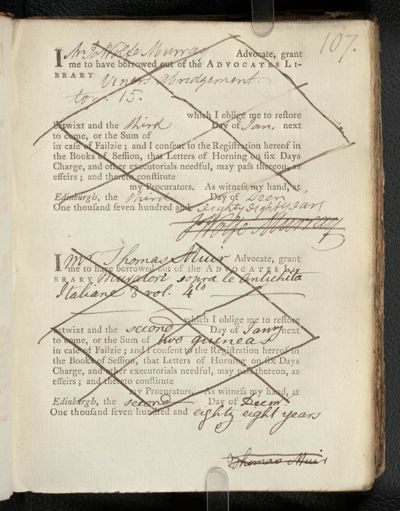 107.
I Mr Ja Wolfe Murray Advocate, grant
me to have borrowed out of the ADVOCATES LI-
BRARY Viners abridgement
tom. 15.
which I oblige me to restore
betwixt and the third Day of Jan. next
to come, or the Sum of
in case of Failzie; and I consent to the Registration hereof in
the Books of Session, that Letters of Horning on six Days
Charge, and other executorials needful, may pass thereon, as
effeirs; and thereto constitute
my Procurators. As witness my hand, at
Edinburgh, the third Day of Decem
One thousand seven hundred and eighty eight years
J Wolfe Murray
I Mr Thomas Muir Advocate, grant
me to have borrowed out of the ADVOCATES LI-
BRARY Muratori sopra le Antichita
Italiane 3 vol. 4to
which I oblige me to restore
betwixt and the second Day of Janry next
to come, or the Sum of two guineas
in case of Failzie; and I consent to the Registration hereof in
the Books of Session, that Letters of Horning on six Days
Charge, and other executorials needful, may pass thereon, as
effeirs; and thereto constitute
my Procurators. As witness my hand, at
Edinburgh, the second Day of Decem
One thousand seven hundred and eighty eight years
Thomas Muir